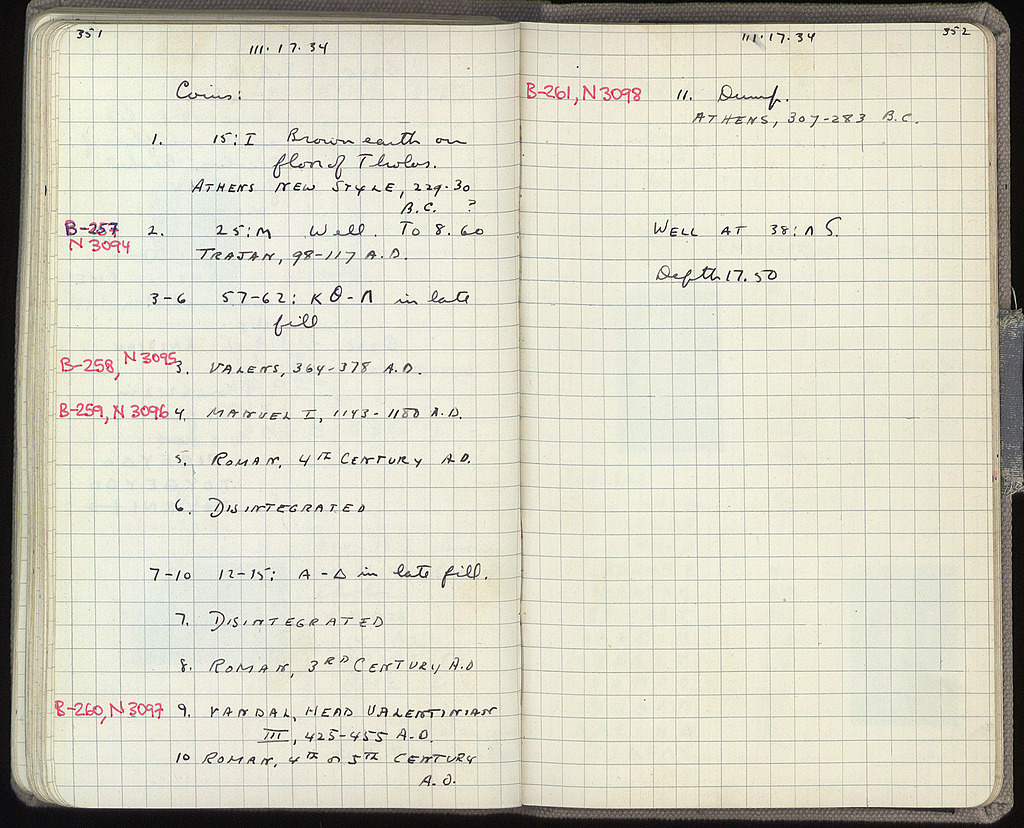 351
III·17·34
Coins:
1. 15:I Brown earth on
floor of Tholos.
ATHENS NEW STYLE, 229-30
B.C. ?
B-257 2. 25:M Well. To 8.60
N 3094
TRAJAN, 98-117 A.D.
3-6 57-62: KΘ-Λ in late
fill
B-258, N 3095 3. VALENS, 364-378 A.D.
B-259, N 3096 4. MANUEL I, 1143-1180 A.D.
5. ROMAN, 4TH CENTURY A.D.
6. DISINTEGRATED
7-10 12-15: A-Δ in late fill.
7. DISINTEGRATED
8. ROMAN, 3RD CENTURY A.D
B-260, N 3097 9. VANDAL, HEAD VALENTINIAN
III, 425-455 A.D.
10 ROMAN, 4TH or 5TH CENTURY
A.D.
III·17·34
352
B-261, N 3098 11. Dump.
ATHENS, 307-283 B.C.
WELL AT 38:ΛS.
Depth 17.50